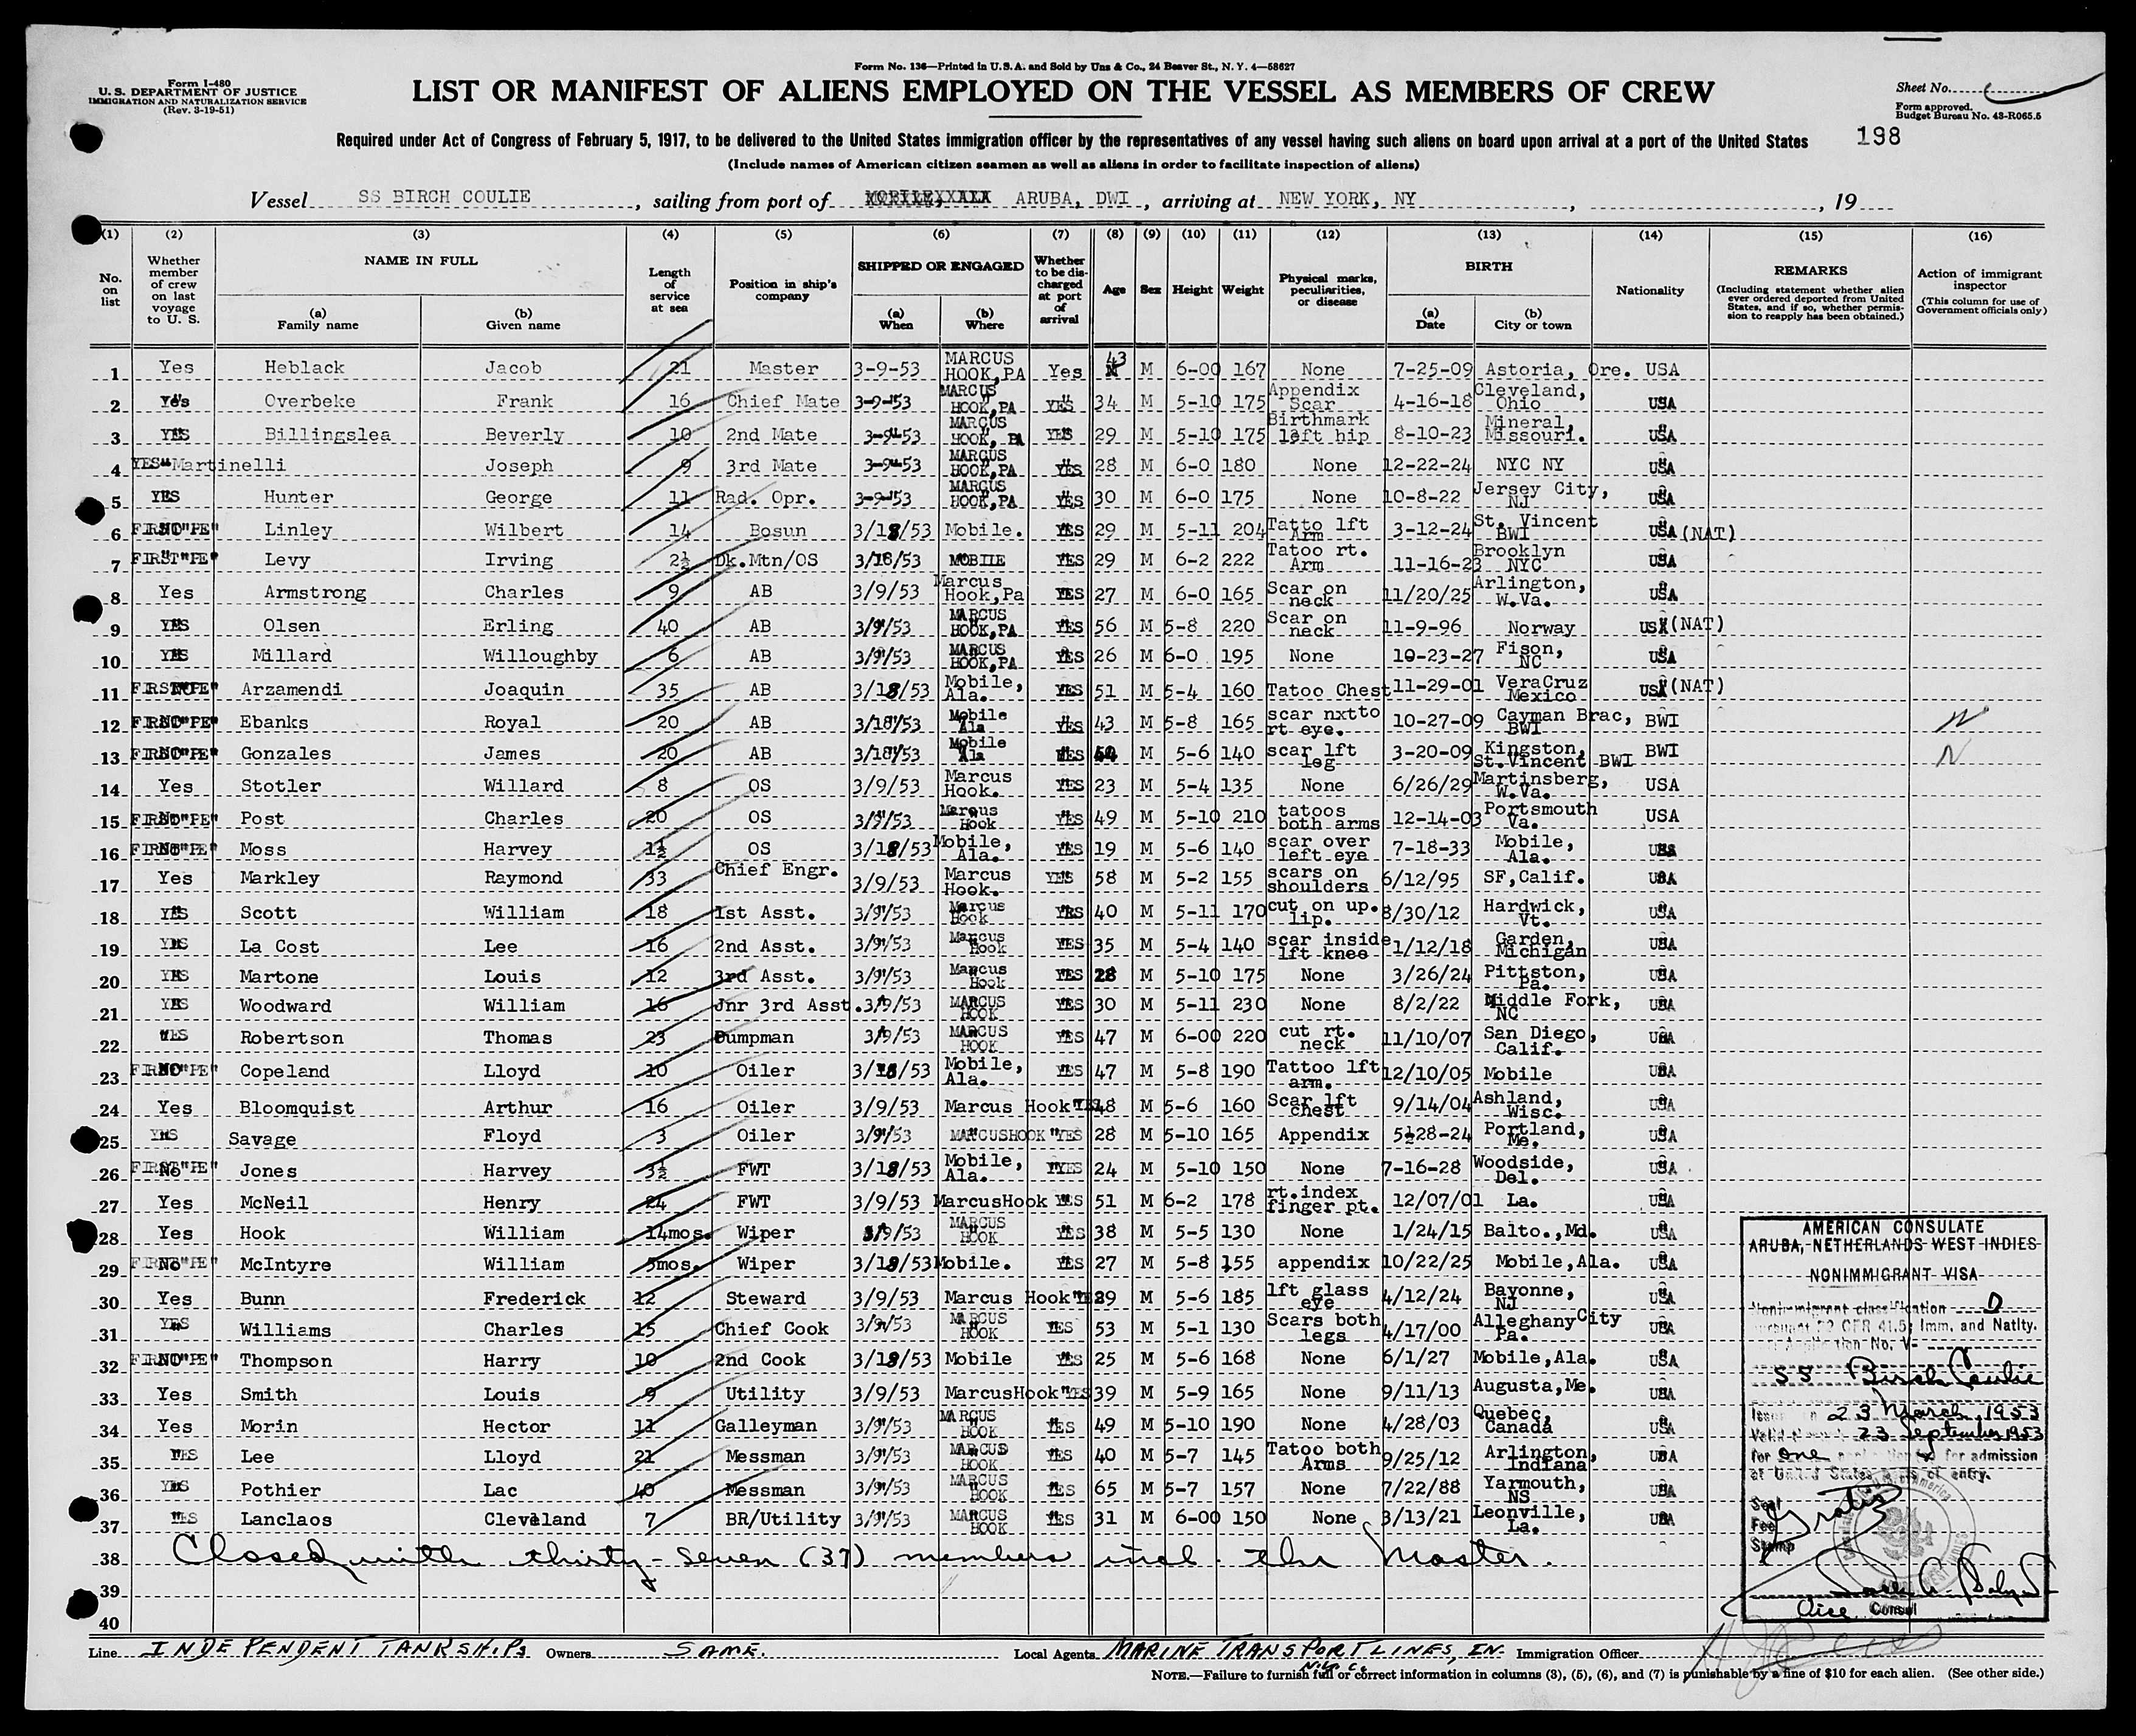 Form No. 136—Printed in U.S.A. and Sold by Unz & Co., 24 Beaver St., N. Y. 4—58627
Form I-480
U. S. DEPARTMENT OF JUSTICE
IMMIGRATION AND NATURALIZATION SERVICE
(Rev. 3-19-51)
LIST OR MANIFEST OF ALIENS EMPLOYED ON THE VESSEL AS MEMBERS OF CREW
Sheet No.
Form approved.
Budget Bureau No. 43-R065.5
Required under Act of Congress of February 5, 1917, to be delivered to the United States immigration officer by the representatives of any vessel having such aliens on board upon arrival at a port of the United States
198
(Include names of American citizen seamen as well as aliens in order to facilitate inspection of aliens)
Vessel SS BIRCH COULIE, sailing from port of ARUBA, DWI, arriving at NEW YORK, NY, , 19
(1) (2) (3) (4) (5) (6) (7) (8) (9) (10) (11) (12) (13) (14) (15) (16)
No. on list
Whether member of crew on last voyage to U. S.
NAME IN FULL
(a) Family name
(b) Given name
Length of service at sea
Position in ship's company
SHIPPED OR ENGAGED
(a) When
(b) Where
Whether to be discharged at port of arrival
Age
Sex
Height
Weight
Physical marks, peculiarities, or disease
BIRTH
(a) Date
(b) City or town
Nationality
REMARKS
(Including statement whether alien ever ordered deported from United States, and if so, whether permission to reapply has been obtained.)
Action of immigrant inspector
(This column for use of Government officials only)
1 Yes Heblack Jacob 21 Master 3-9-53 MARCUS HOOK, PA Yes 43 M 6-00 167 None 7-25-09 Astoria, Ore. USA
2 Yes Overbeke Frank 16 Chief Mate 3-9-53 MARCUS HOOK, PA YES 34 M 5-10 175 Appendix Scar 4-16-18 Cleveland, Ohio USA
3 YES Billingslea Beverly 10 2nd Mate 3-9-53 MARCUS HOOK, PA YES 29 M 5-10 175 Birthmark left hip 8-10-23 Mineral, Missouri. USA
4 YES Martinelli Joseph 9 3rd Mate 3-9-53 MARCUS HOOK, PA YES 28 M 6-0 180 None 12-22-24 NYC NY USA
5 YES Hunter George 11 Rad. Opr. 3-9-53 MARCUS HOOK, PA YES 30 M 6-0 175 None 10-8-22 Jersey City, NJ USA
6 FIRST "PE" Linley Wilbert 14 Bosun 3/18/53 Mobile. YES 29 M 5-11 204 Tatto lft Arm 3-12-24 St. Vincent BWI USA (NAT)
7 FIRST "PE" Levy Irving 2½ Dk.Mtn/OS 3/18/53 MOBILE YES 29 M 6-2 222 Tatoo rt. Arm 11-16-23 Brooklyn NYC USA
8 Yes Armstrong Charles 9 AB 3/9/53 Marcus Hook, Pa YES 27 M 6-0 165 Scar on neck 11/20/25 Arlington, W.Va. USA
9 YES Olsen Erling 40 AB 3/9/53 MARCUS HOOK, PA YES 56 M 5-8 220 Scar on neck 11-9-96 Norway USA (NAT)
10 YES Millard Willoughby 6 AB 3/9/53 MARCUS HOOK, PA YES 26 M 6-0 195 None 10-23-27 Fison, NC USA
11 FIRST "PE" Arzamendi Joaquin 35 AB 3/18/53 Mobile, Ala. YES 51 M 5-4 160 Tatoo Chest 11-29-01 VeraCruz Mexico USA (NAT)
12 FIRST "PE" Ebanks Royal 20 AB 3/18/53 Mobile Ala YES 43 M 5-8 165 scar nxtto rt eye. 10-27-09 Cayman Brac, BWI BWI N
13 FIRST "PE" Gonzales James 20 AB 3/18/53 Mobile Ala YES M 5-6 140 scar lft leg 3-20-09 Kingston, St.Vincent BWI BWI N
14 Yes Stotler Willard 8 OS 3/9/53 Marcus Hook. YES 23 M 5-4 135 None 6/26/29 Martinsberg, W.Va. USA
15 FIRST "PE" Post Charles 20 OS 3/9/53 Marcus Hook YES 49 M 5-10 210 tatoos both arms 12-14-03 Portsmouth Va. USA
16 FIRST "PE" Moss Harvey 1½ OS 3/18/53 Mobile, Ala. YES 19 M 5-6 140 scar over left eye 7-18-33 Mobile, Ala. USA
17 Yes Markley Raymond 33 Chief Engr. 3/9/53 Marcus Hook. YES 58 M 5-2 155 scars on shoulders 6/12/95 SF, Calif. USA
18 YES Scott William 18 1st Asst. 3/9/53 Marcus Hook YES 40 M 5-11 170 cut on up. lip. 8/30/12 Hardwick, Vt. USA
19 YES La Cost Lee 16 2nd Asst. 3/9/53 Marcus Hook YES 35 M 5-4 140 scar inside lft knee 1/12/18 Garden, Michigan USA
20 YES Martone Louis 12 3rd Asst. 3/9/53 Marcus Hook YES 28 M 5-10 175 None 3/26/24 Pittston, Pa. USA
21 YES Woodward William 16 Jnr 3rd Asst. 3/9/53 MARCUS HOOK YES 30 M 5-11 230 None 8/2/22 Middle Fork, NC USA
22 YES Robertson Thomas 23 Pumpman 3/9/53 MARCUS HOOK YES 47 M 6-00 220 cut rt. neck 11/10/07 San Diego, Calif. USA
23 FIRST "PE" Copeland Lloyd 10 Oiler 3/18/53 Mobile, Ala. YES 47 M 5-8 190 Tattoo lft arm. 12/10/05 Mobile USA
24 Yes Bloomquist Arthur 16 Oiler 3/9/53 Marcus Hook YES 48 M 5-6 160 Scar lft chest 9/14/04 Ashland, Wisc. USA
25 YES Savage Floyd 3 Oiler 3/9/53 MARCUSHOOK YES 28 M 5-10 165 Appendix 5-28-24 Portland, Me. USA
26 FIRST "PE" Jones Harvey 3½ FWT 3/18/53 Mobile, Ala. YES 24 M 5-10 150 None 7-16-28 Woodside, Del. USA
27 Yes McNeil Henry 24 FWT 3/9/53 MarcusHook YES 51 M 6-2 178 rt.index finger pt. 12/07/01 La. USA
28 Yes Hook William 14mos. Wiper 3/9/53 MARCUS HOOK YES 38 M 5-5 130 None 1/24/15 Balto., Md. USA
29 FIRST "PE" McIntyre William 5mos. Wiper 3/18/53 Mobile. YES 27 M 5-8 155 appendix 10/22/25 Mobile, Ala. USA
30 Yes Bunn Frederick 12 Steward 3/9/53 Marcus Hook M 5-6 185 lft glass eye 4/12/24 Bayonne, NJ USA
31 YES Williams Charles 15 Chief Cook 3/9/53 MARCUS HOOK YES 53 M 5-1 130 Scars both legs 4/17/00 Alleghany City Pa. USA
32 FIRST "PE" Thompson Harry 10 2nd Cook 3/18/53 Mobile YES 25 M 5-6 168 None 6/1/27 Mobile, Ala. USA
33 Yes Smith Louis 9 Utility 3/9/53 MarcusHook YES 39 M 5-9 165 None 9/11/13 Augusta, Me. USA
34 Yes Morin Hector 11 Galleyman 3/9/53 MARCUS HOOK YES 49 M 5-10 190 None 4/28/03 Quebec, Canada USA
35 YES Lee Lloyd 21 Messman 3/9/53 MARCUS HOOK YES 40 M 5-7 145 Tatoo both Arms 9/25/12 Arlington, Indiana USA
36 YES Pothier Lac 40 Messman 3/9/53 MARCUS HOOK YES 65 M 5-7 157 None 7/22/88 Yarmouth, NS USA
37 YES Lanclaos Cleveland 7 BR/Utility 3/9/53 MARCUS HOOK YES 31 M 6-00 150 None 3/13/21 Leonville, La. USA
38 Closed with thirty-seven (37) members incl. the Master.
39
40
AMERICAN CONSULATE
ARUBA, NETHERLANDS WEST INDIES
NONIMMIGRANT VISA
Nonimmigrant classification D
pursuant 22 CFR 41.5, Imm. and Natlty.
Application No. V-
SS Birch Coulie
Issued on 23 March, 1953
Valid through 23 September 1953
for one for admission
at United States ports of entry.
Seal
Fee Gratis
Stamp
Vice Consul
Line INDEPENDENT TANKSHIPS Owners SAME. Local Agents MARINE TRANSPORT LINES, IN. N.Y.C. Immigration Officer
NOTE.—Failure to furnish full or correct information in columns (3), (5), (6), and (7) is punishable by a fine of $10 for each alien. (See other side.)